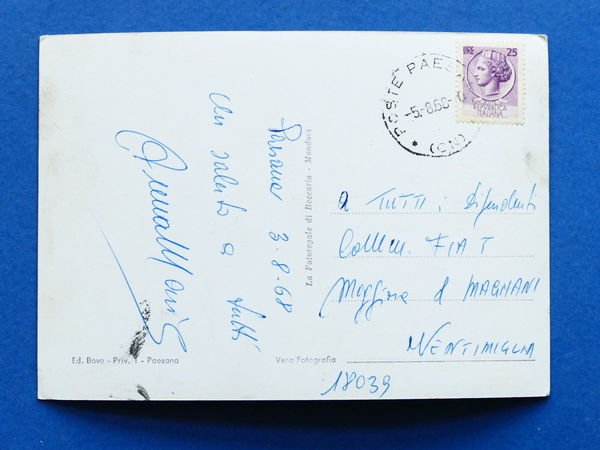 Paesana 3-8-68
Un saluto a tutti
Anna Maria
La Fotoregale di Beccaria - Mondovì
POSTE PAES
-5-8.68-
(CN)
LIRE 25
REPVBBLICA
ITALIANA
a TUTTI i dipendenti
FIAT
MAGNANI
VENTIMIGLIA
18039
Ed. Bovo - Priv. 1 - Paesana
Vera Fotografia